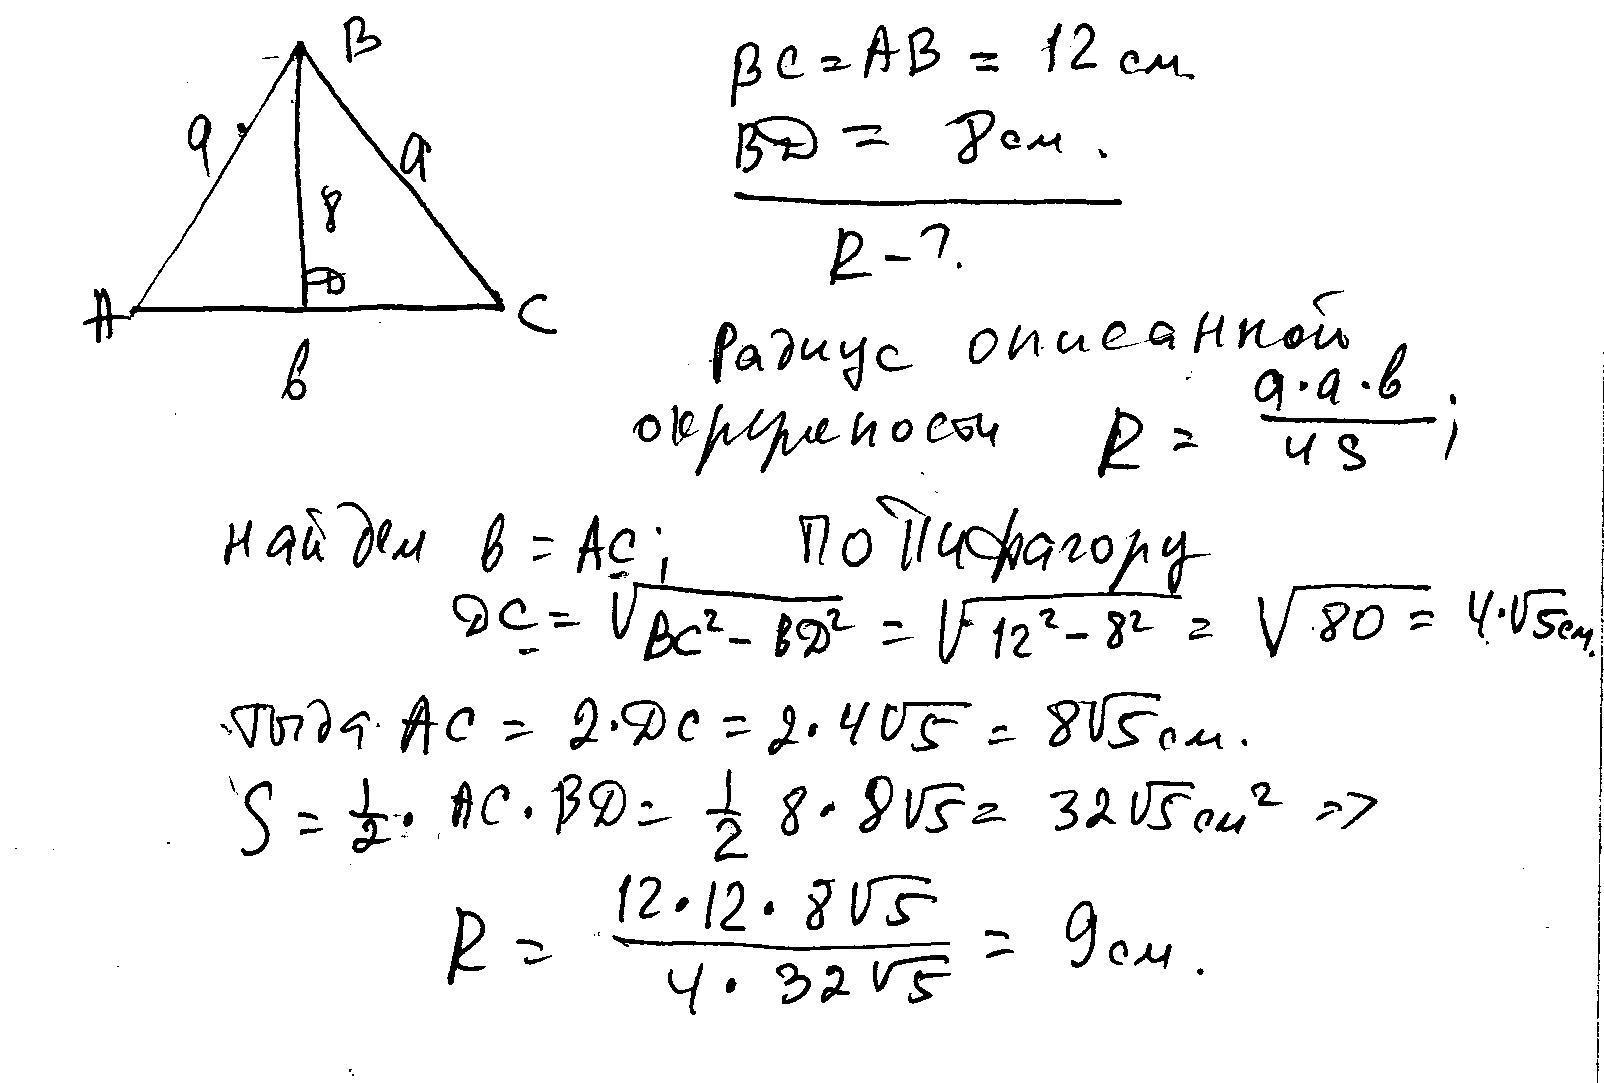 B
BC = AB = 12 см
a
a
BD = 8 см.
8
D
R - ?
A
C
в
Радиус описанной
окружности R = a·a·в / 4S ;
найдем в = AC; По Пифагору
DC = √BC² - BD² = √12² - 8² = √80 = 4·√5 см.
тогда AC = 2·DC = 2·4√5 = 8√5 см.
S = 1/2 · AC · BD = 1/2 8 · 8√5 = 32√5 см² =>
R = 12·12·8√5 / 4·32√5 = 9 см.